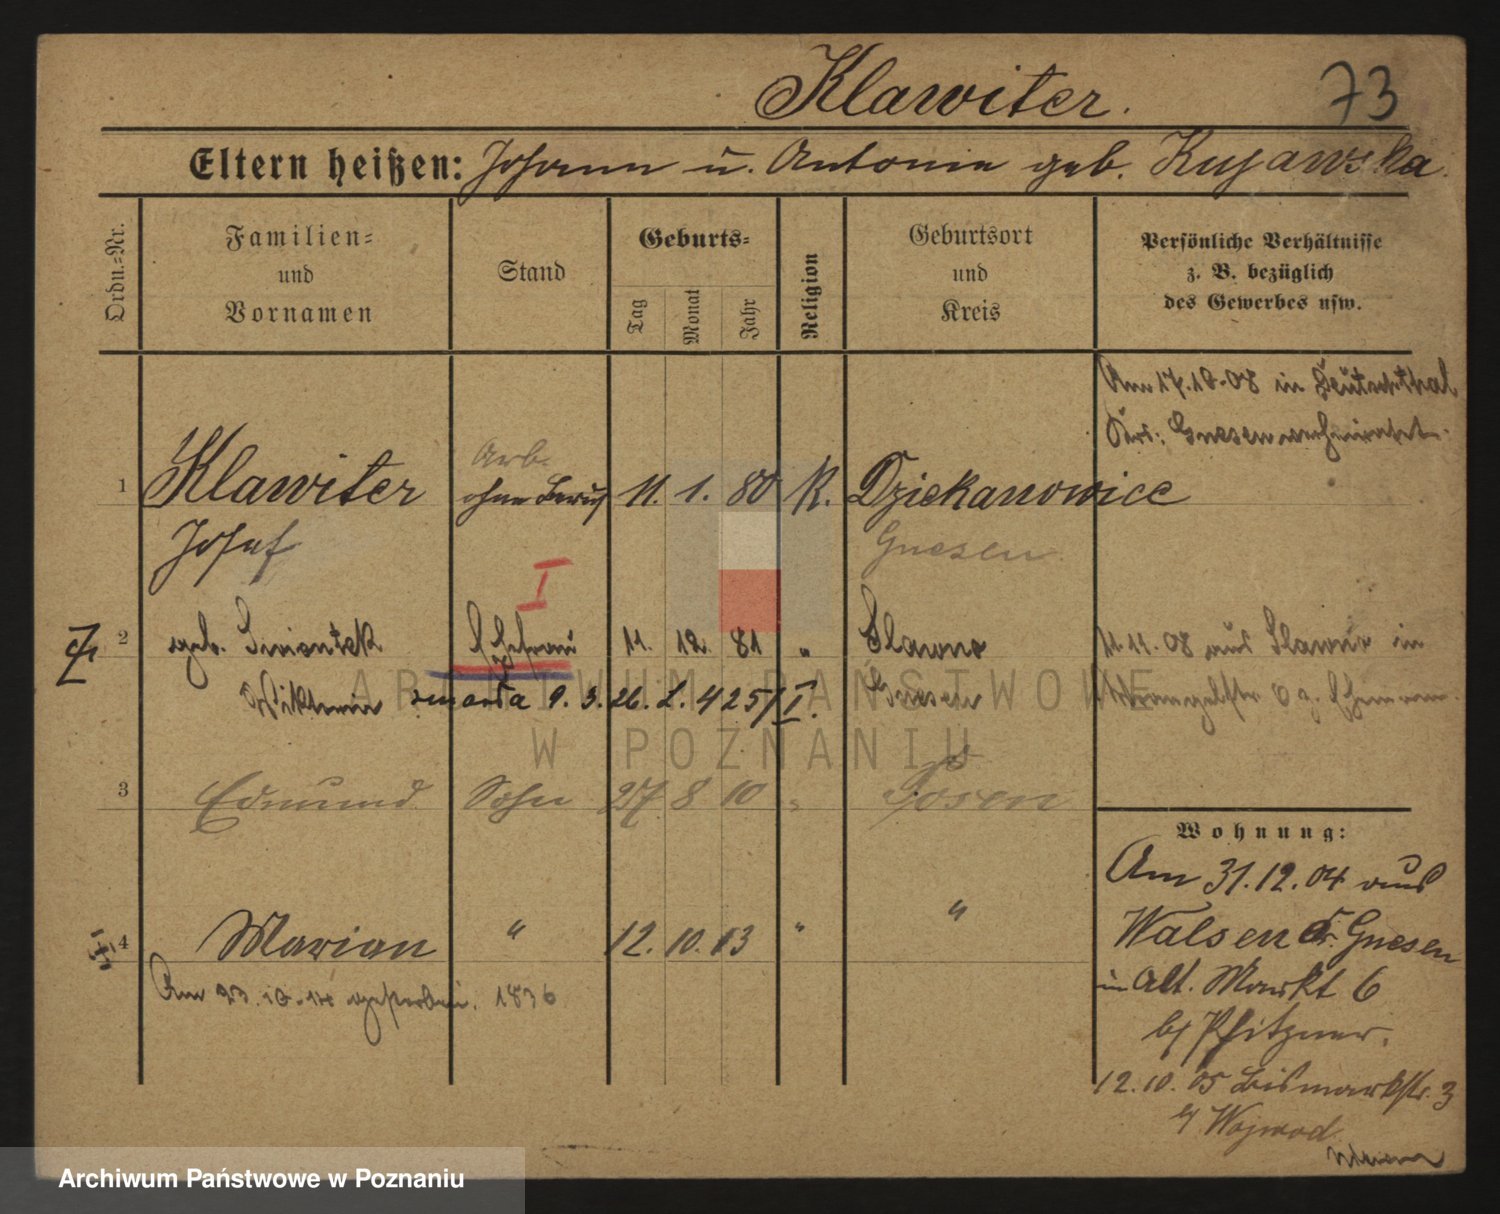 Klawiter. 73
Eltern heißen: Johann u. Antonie geb. Kujawska.
Ordn.-Nr.
Familien-
und
Vornamen
Stand
Geburts-
Tag Monat Jahr
Religion
Geburtsort
und
Kreis
Persönliche Verhältnisse
z. B. bezüglich
des Gewerbes usw.
Am 17.10.08 in Deutschthal
Krs. Gnesen verheiratet.
Arb.
1 Klawiter ohne Beruf 11. 1. 80 K. Dziekanowice
Josef Gnesen
I
2 geb. Swiontek Ehefrau 11. 12. 81 " Slawno 11.11.08 aus Slawno in
Wiktoria zmarła 9. 3. 26. L. 425/I. Gnesen
3 Edmund Sohn 27 8 10 " Posen
4 Marian " 12. 10. 13 " "
Am 23.10.14 gestorben. 1836
Wohnung:
Am 31.12.04 aus
Walsen Kr. Gnesen
in Alt. Markt 6
b/ Pfitzner.
12.10.05 Bismarckstr. 3
b/ Wojwod
ARCHIWUM PAŃSTWOWE
W POZNANIU
Archiwum Państwowe w Poznaniu